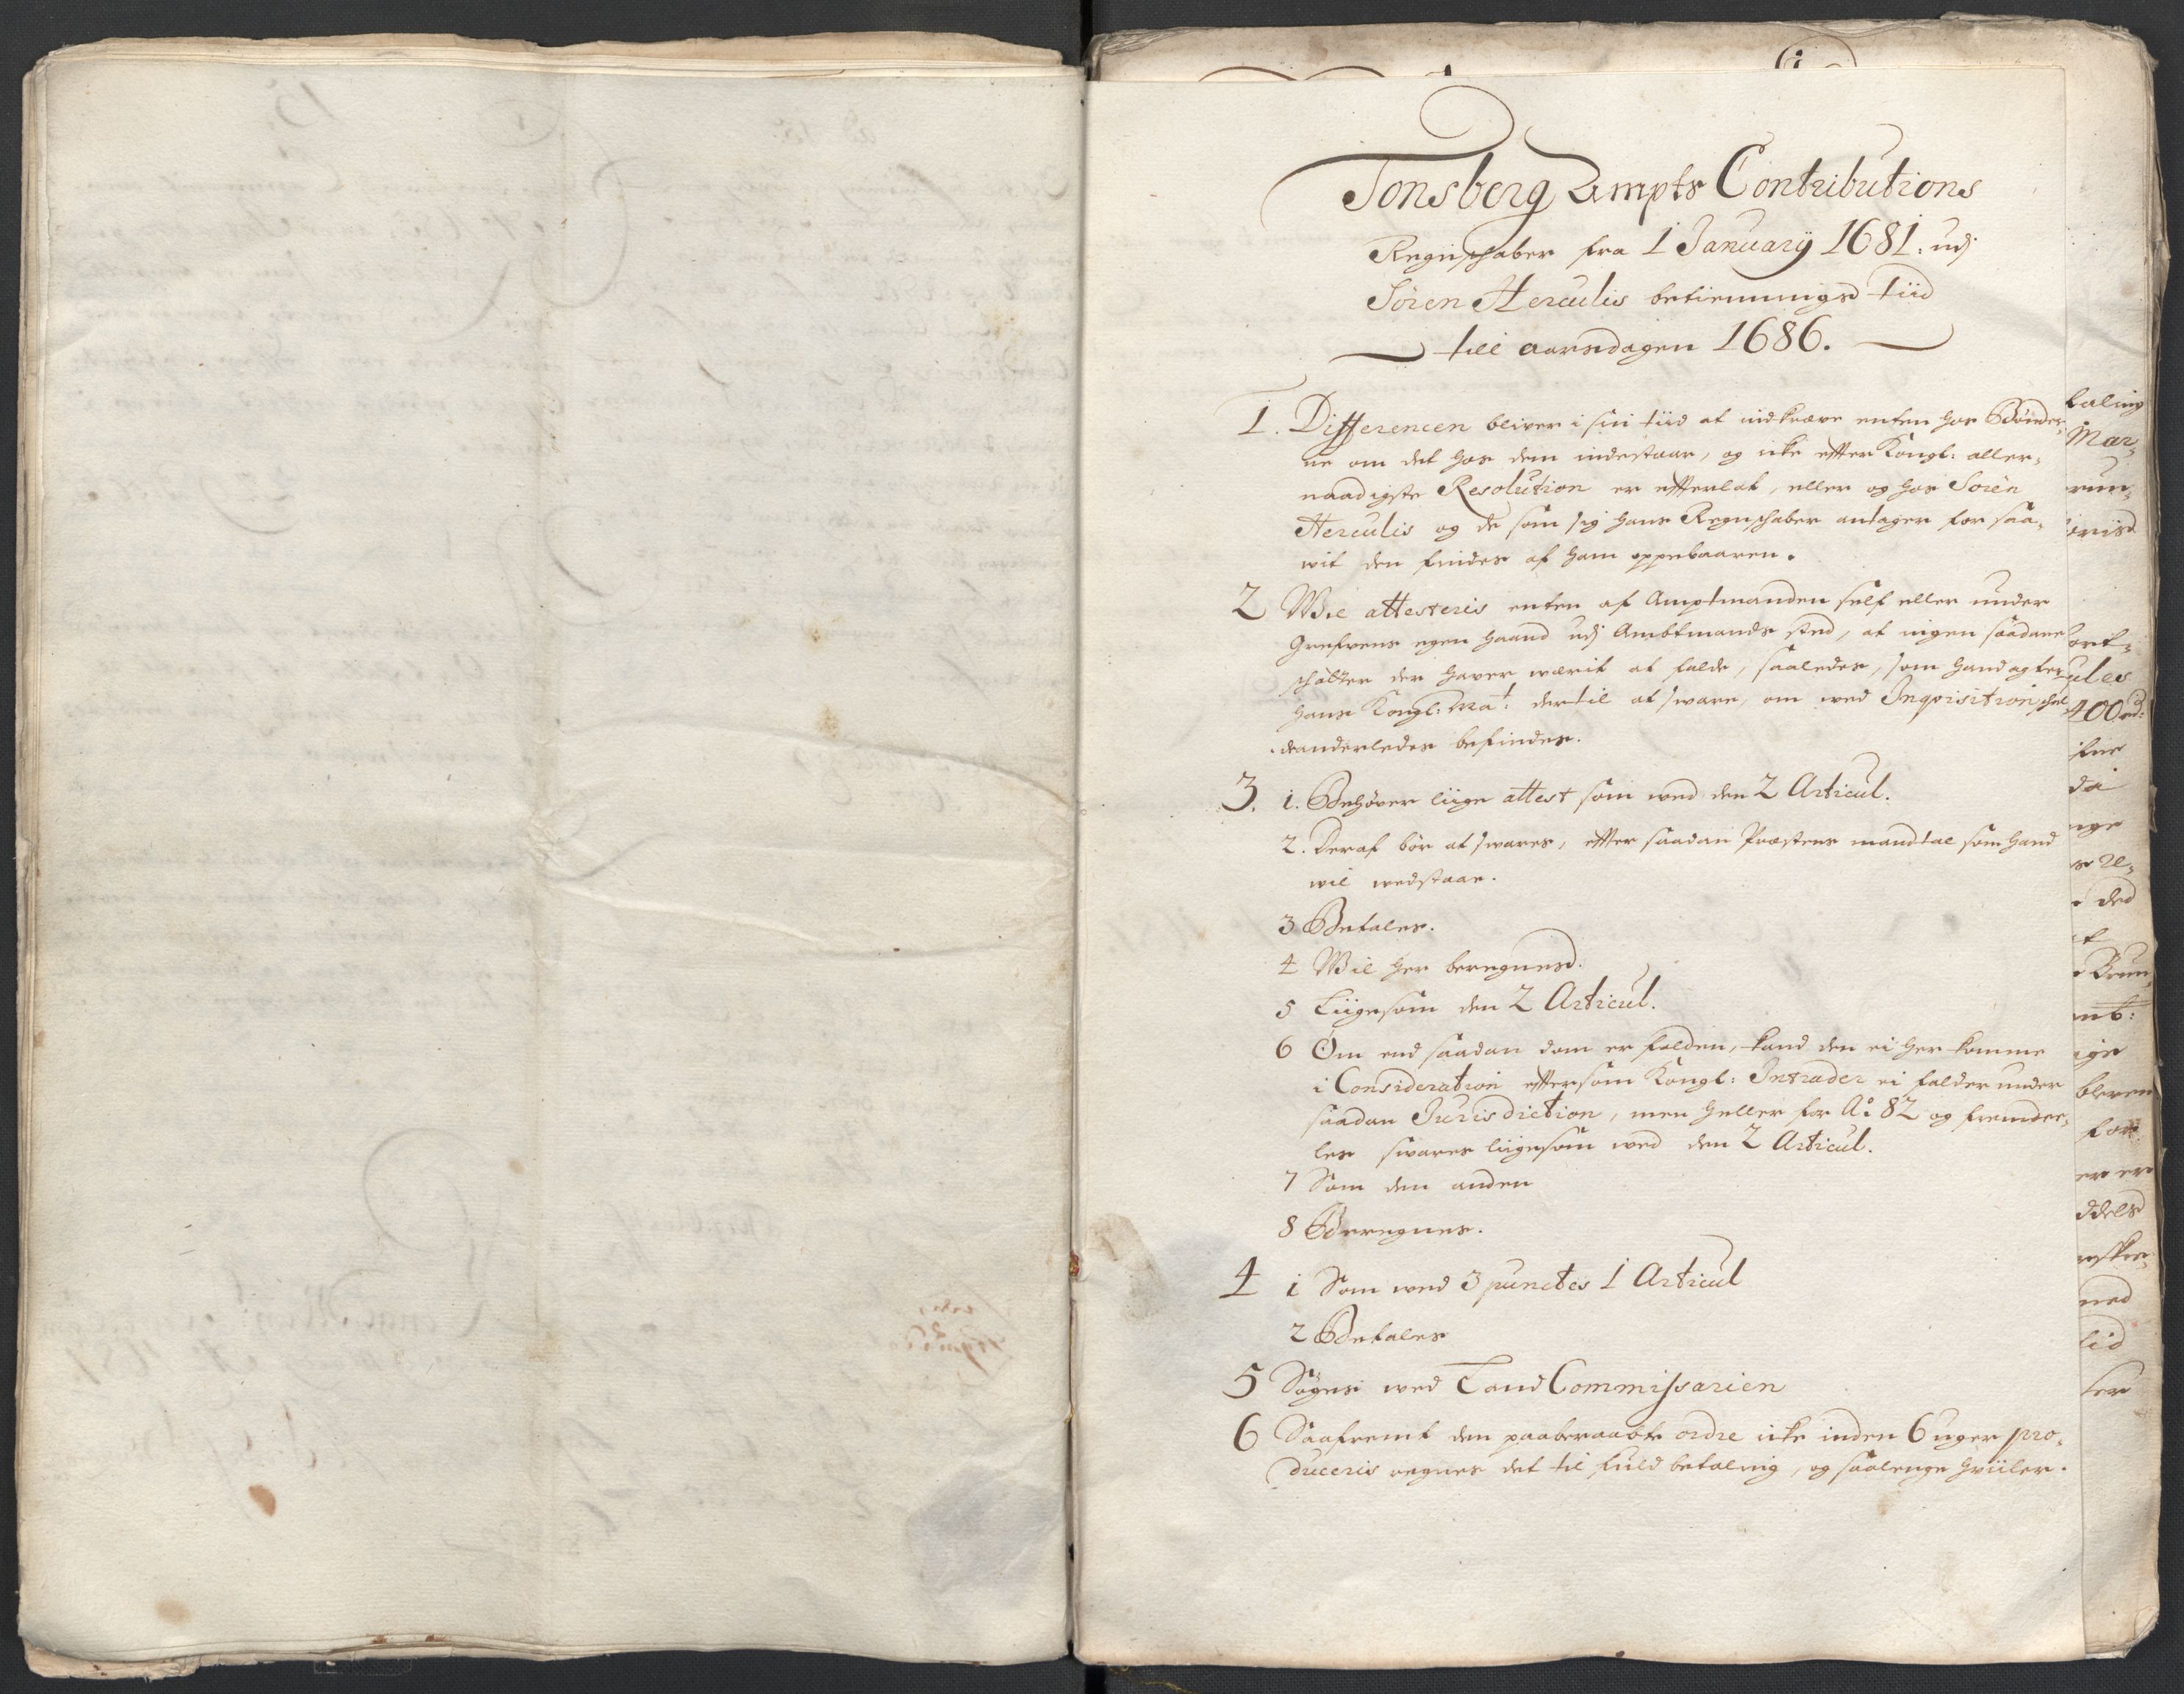 Tonsberg Ampts Contributions
Regnschaber fra 1 January 1681. udj
Sören Herculis betiennings tiid
till aarsdagen 1686.
1. Differencen bliver i sin tiid at indkræve enten hos Bönder,
ne om det hos dem indestaar, og icke effter Kongl: aller,
naadigste Resolution er effterlat, eller og hos Sören
Herculis og de som sig hans Regnschaber antager for saa,
wit den findes af ham oppebaaren.
2 Wil attesteris enten af Amptmanden self eller under
Grefvens egen haand udj Ambtmands sted, at ingen saadane
schatter der haver wærit at falde, saaledes, som hand agter
hans Kongl: Ma:t dertil at sware, om wed Inqvisition schal
anderledes befindes.
3. 1. Behöver liige attest som wed den 2 Articul.
2. Deraf bör at swares, effter saadan Præstens mandtal som hand
wil wedstaae.
3 Betales.
4 Wil her beregnes.
5 Liigesom den 2 Articul.
6 Om end saadan dom er falden, kand den ei her komme
i Consideration efftersom Kongl: Intrader ei falder under
saadan Jurisdiction, men heller for A:o 82 og fremdee,
les swares liigesom wed den 2 Articul.
7 Som den anden
8 Beregnes.
4 1 Som wed 3 punctes 1 Articul
2 Betales
5 Söges wed Land Commissarien
6 Saafremt den paaberaabte ordre icke inden 6 uger pro,
duceris regnes det til fuld betaling, og saalenge hviiler.